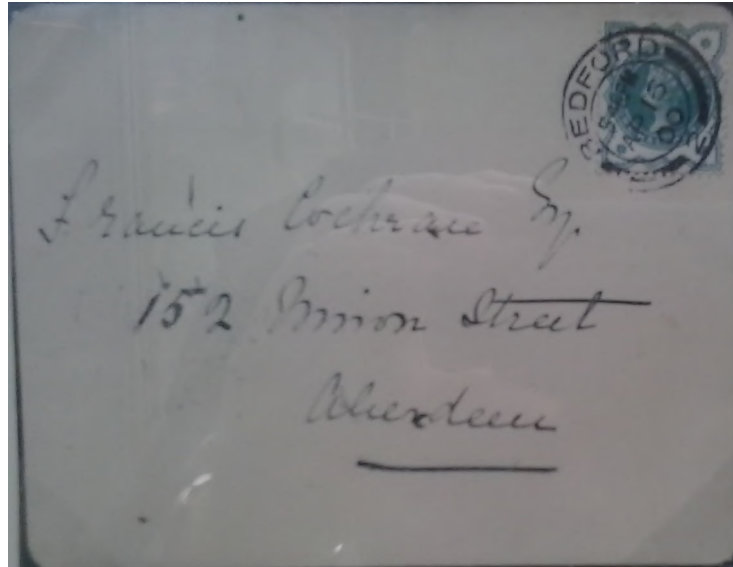 BEDFORD
00
Francis Cochran Esq.
152 Union Street
Aberdeen